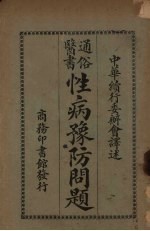 中華續行委辦會譯述
通俗醫書
性病豫防問題
商務印書館發行